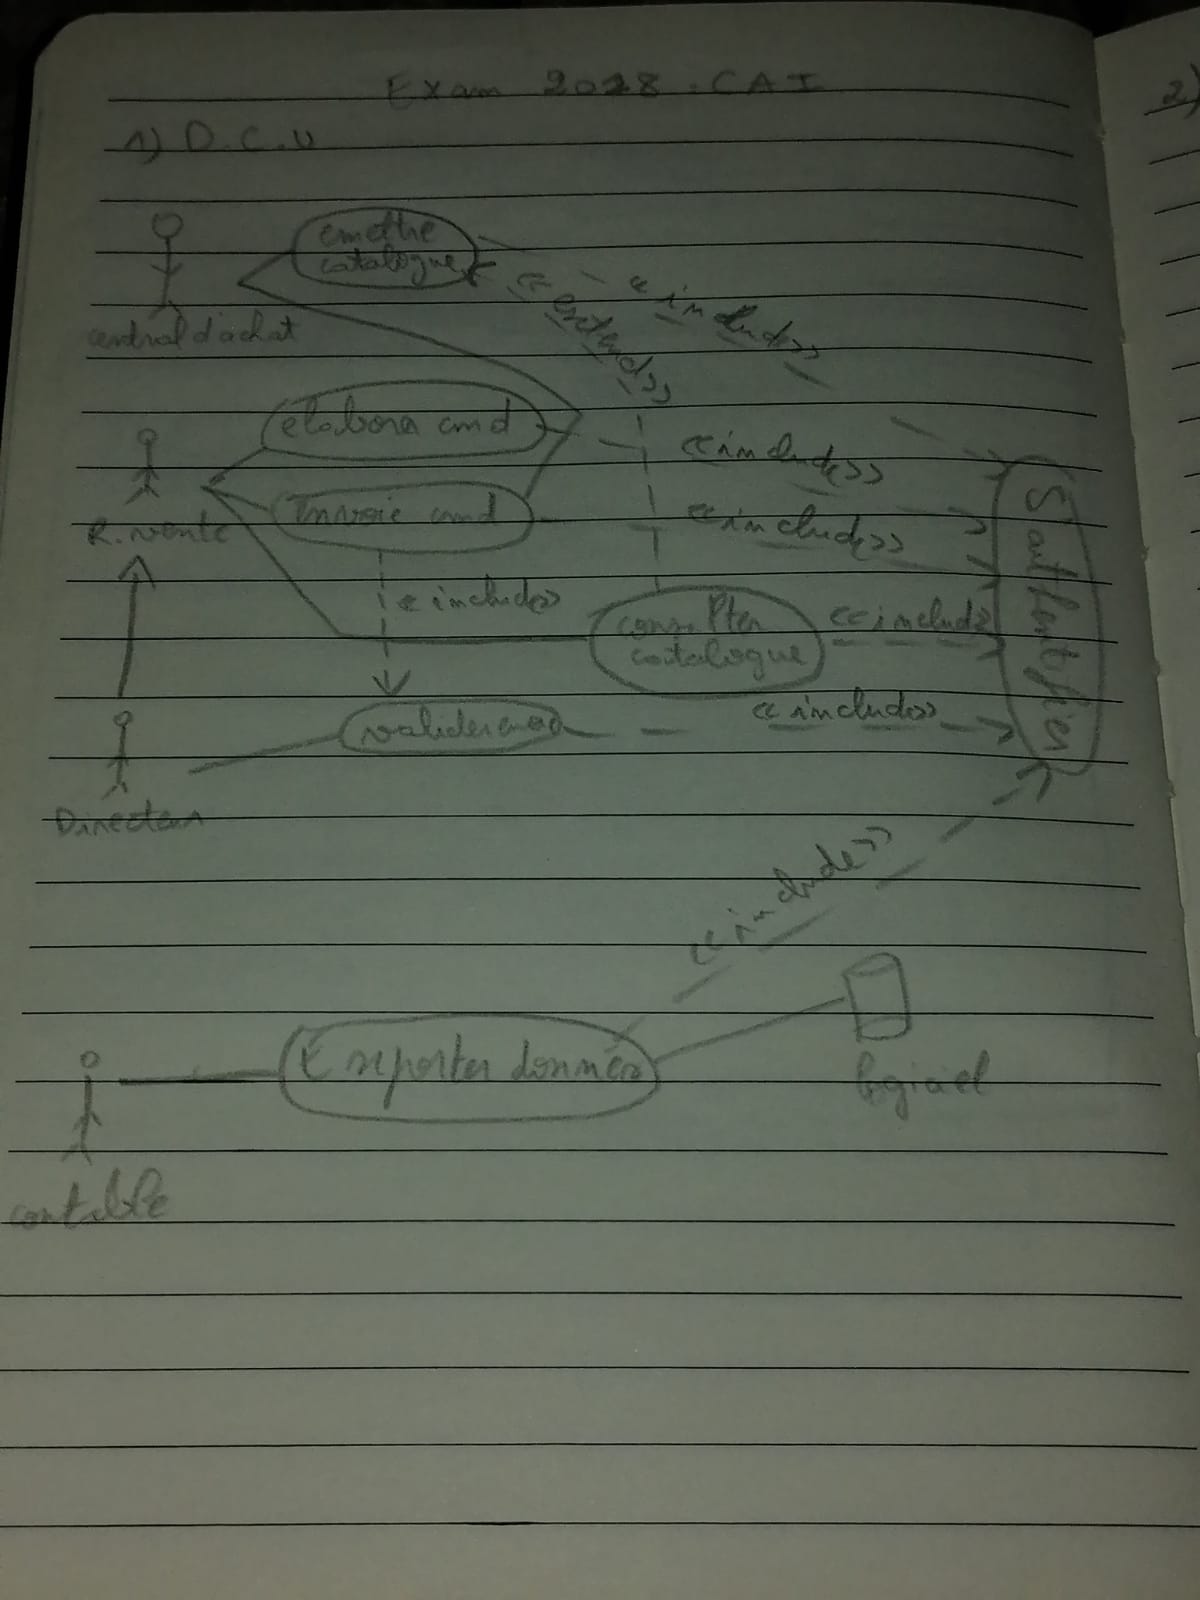 Exam 2028. CAI
2)
1) D.C.U
emettre
catalogue
<<include>>
<<extend>>
central d'achat
elabora cmd
<<include>>
Envoie cmd
<<include>>
R. vente
<<include>>
consulter
catalogue
<<include>>
S'authentifier
valider cmd
<<include>>
Directeur
<<include>>
Exporter données
logiciel
contable